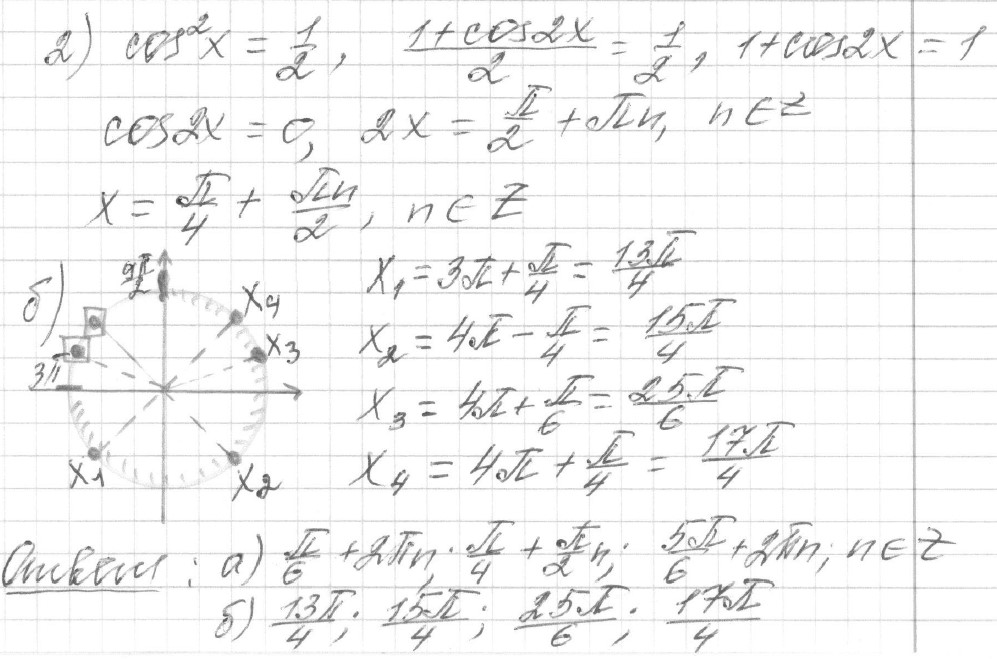 2) cos²x = 1/2, (1+cos2x)/2 = 1/2, 1+cos2x = 1
cos2x = 0, 2x = π/2 + πn, n∈Z
x = π/4 + πn/2, n∈Z
б) 9π/2 x4 x3 3π x1 x2
x₁ = 3π + π/4 = 13π/4
x₂ = 4π − π/4 = 15π/4
x₃ = 4π + π/6 = 25π/6
x₄ = 4π + π/4 = 17π/4
Ответ: а) π/6 + 2πn; π/4 + π/2 n; 5π/6 + 2πn; n∈Z
б) 13π/4; 15π/4; 25π/6; 17π/4